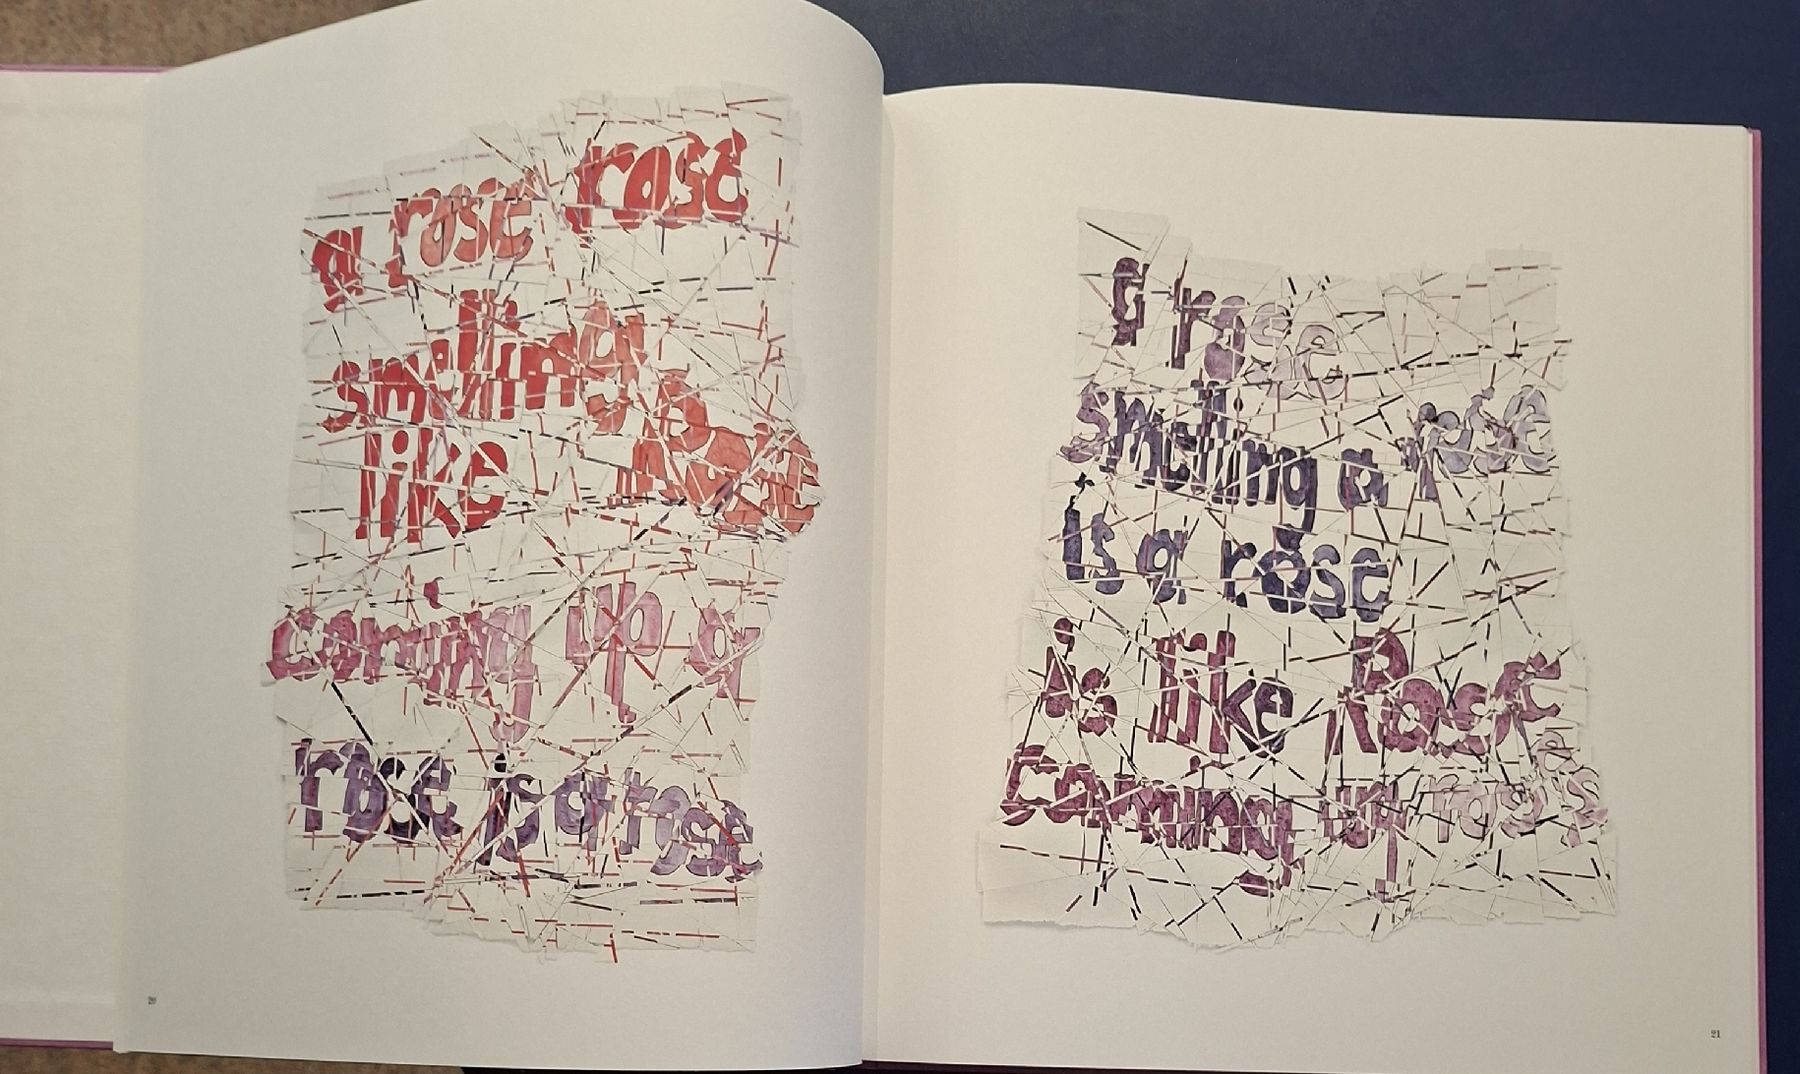 a rose rose
smelling a
like Rose
coming up a
rose is a rose
20
a rose
smelling a rose
is a rose
is like Rose
coming up roses
21